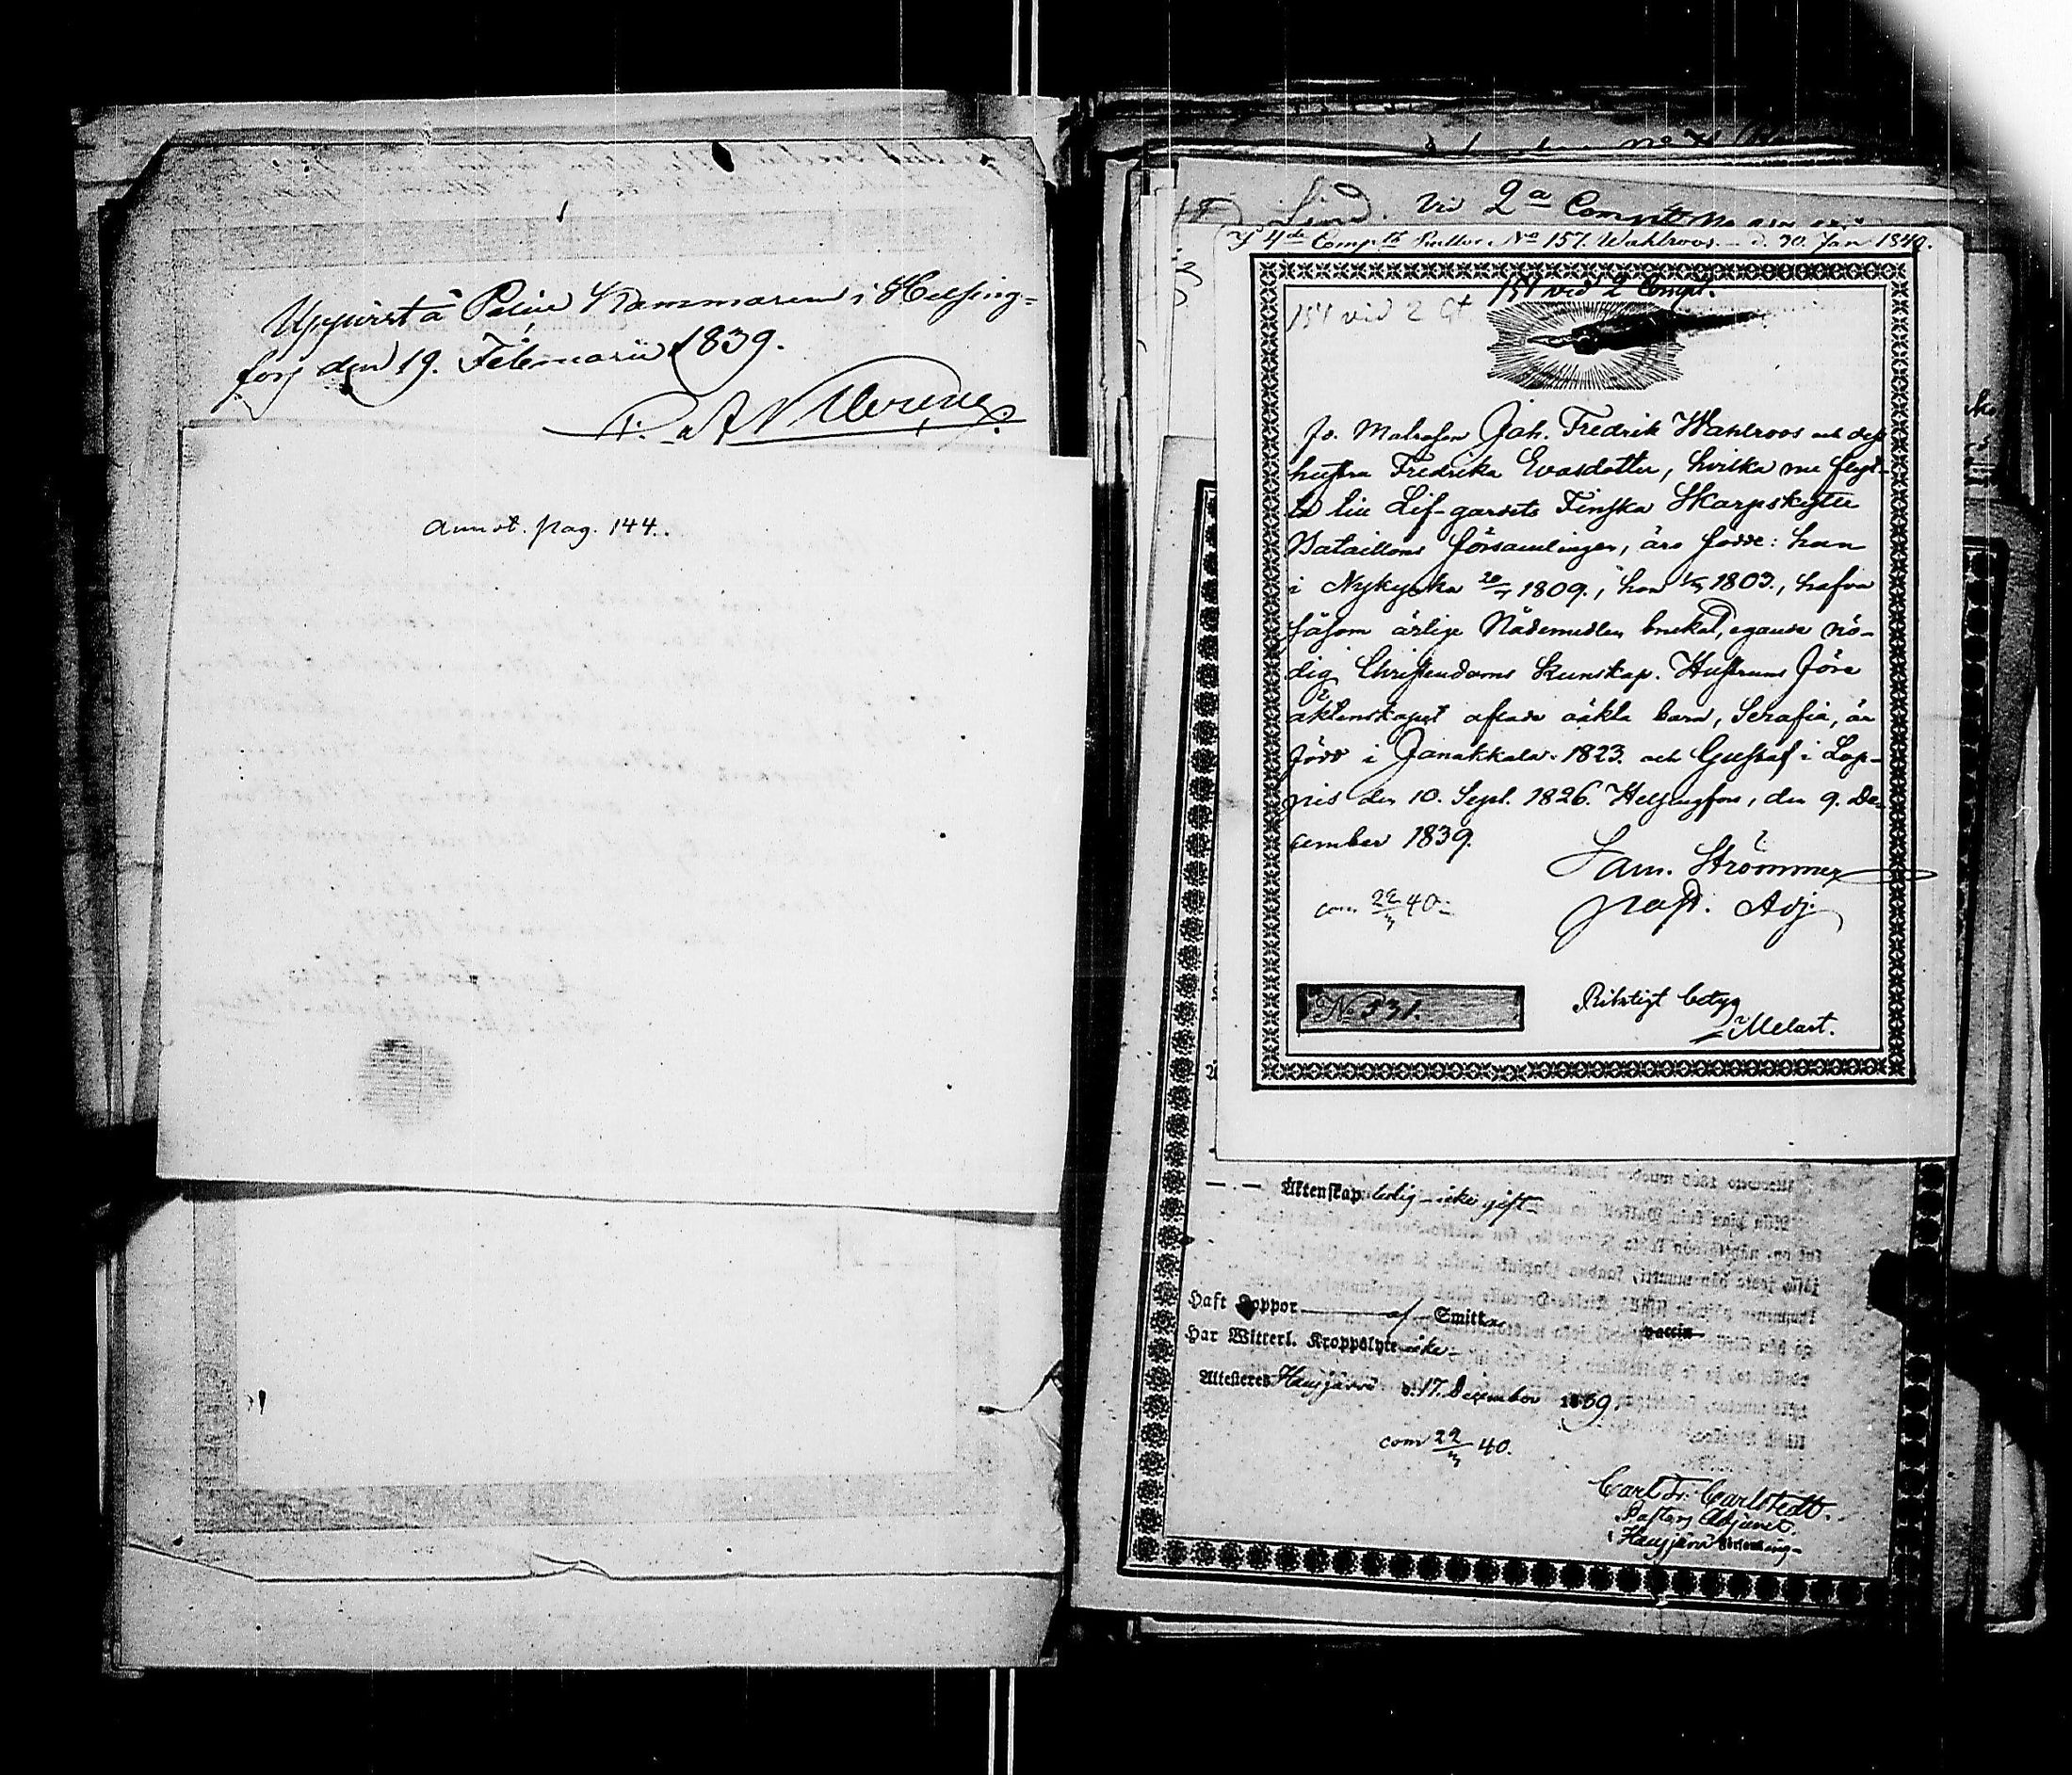 Uppvist å Police Kammaren i Helsing=
fors den 19. Februarii 1839.
annot. pag. 144.
Lind. vid 2a Comp
4de Comp. No 157. Wahlroos. d. 30. Jan 1840.
151 vid 2 Comp.
151 vid 2 Ct
Joh. Fredrik Wahlroos och dess
hustru Fredrika Evasdotter, hvilka nu flyt-
ta till Lif-gardets Finska Skarpskytte
Bataillons församlingen, äro födde: han
i Nykyrka 20/ 1809., hon 1803., hafva
såsom ärlige Nådemedlen brukat, egande nö-
dig Christendoms kunskap. Hustruns före
äktenskapet aflade oäkta barn, Serafia, är
född i Janakkala 1823. och Gustaf i Lop-
pis den 10. Sept. 1826. Helsingfors, den 9. De-
cember 1839.
Sam. Strömmer
past. Adj.
com 22/3 40.
No 531.
Riktigt betyg
Melart.
— . — Äktenskap ledig - icke gift -
Haft Koppor af Smitta
vaccin
Har Witterl. Kroppslyte icke -
Attesteres Hausjärvi d. 17. December 1839.
com 22/3 40.
Carl Fr. Carlstedt.
Pastors Adjunct.
i Hausjärvi